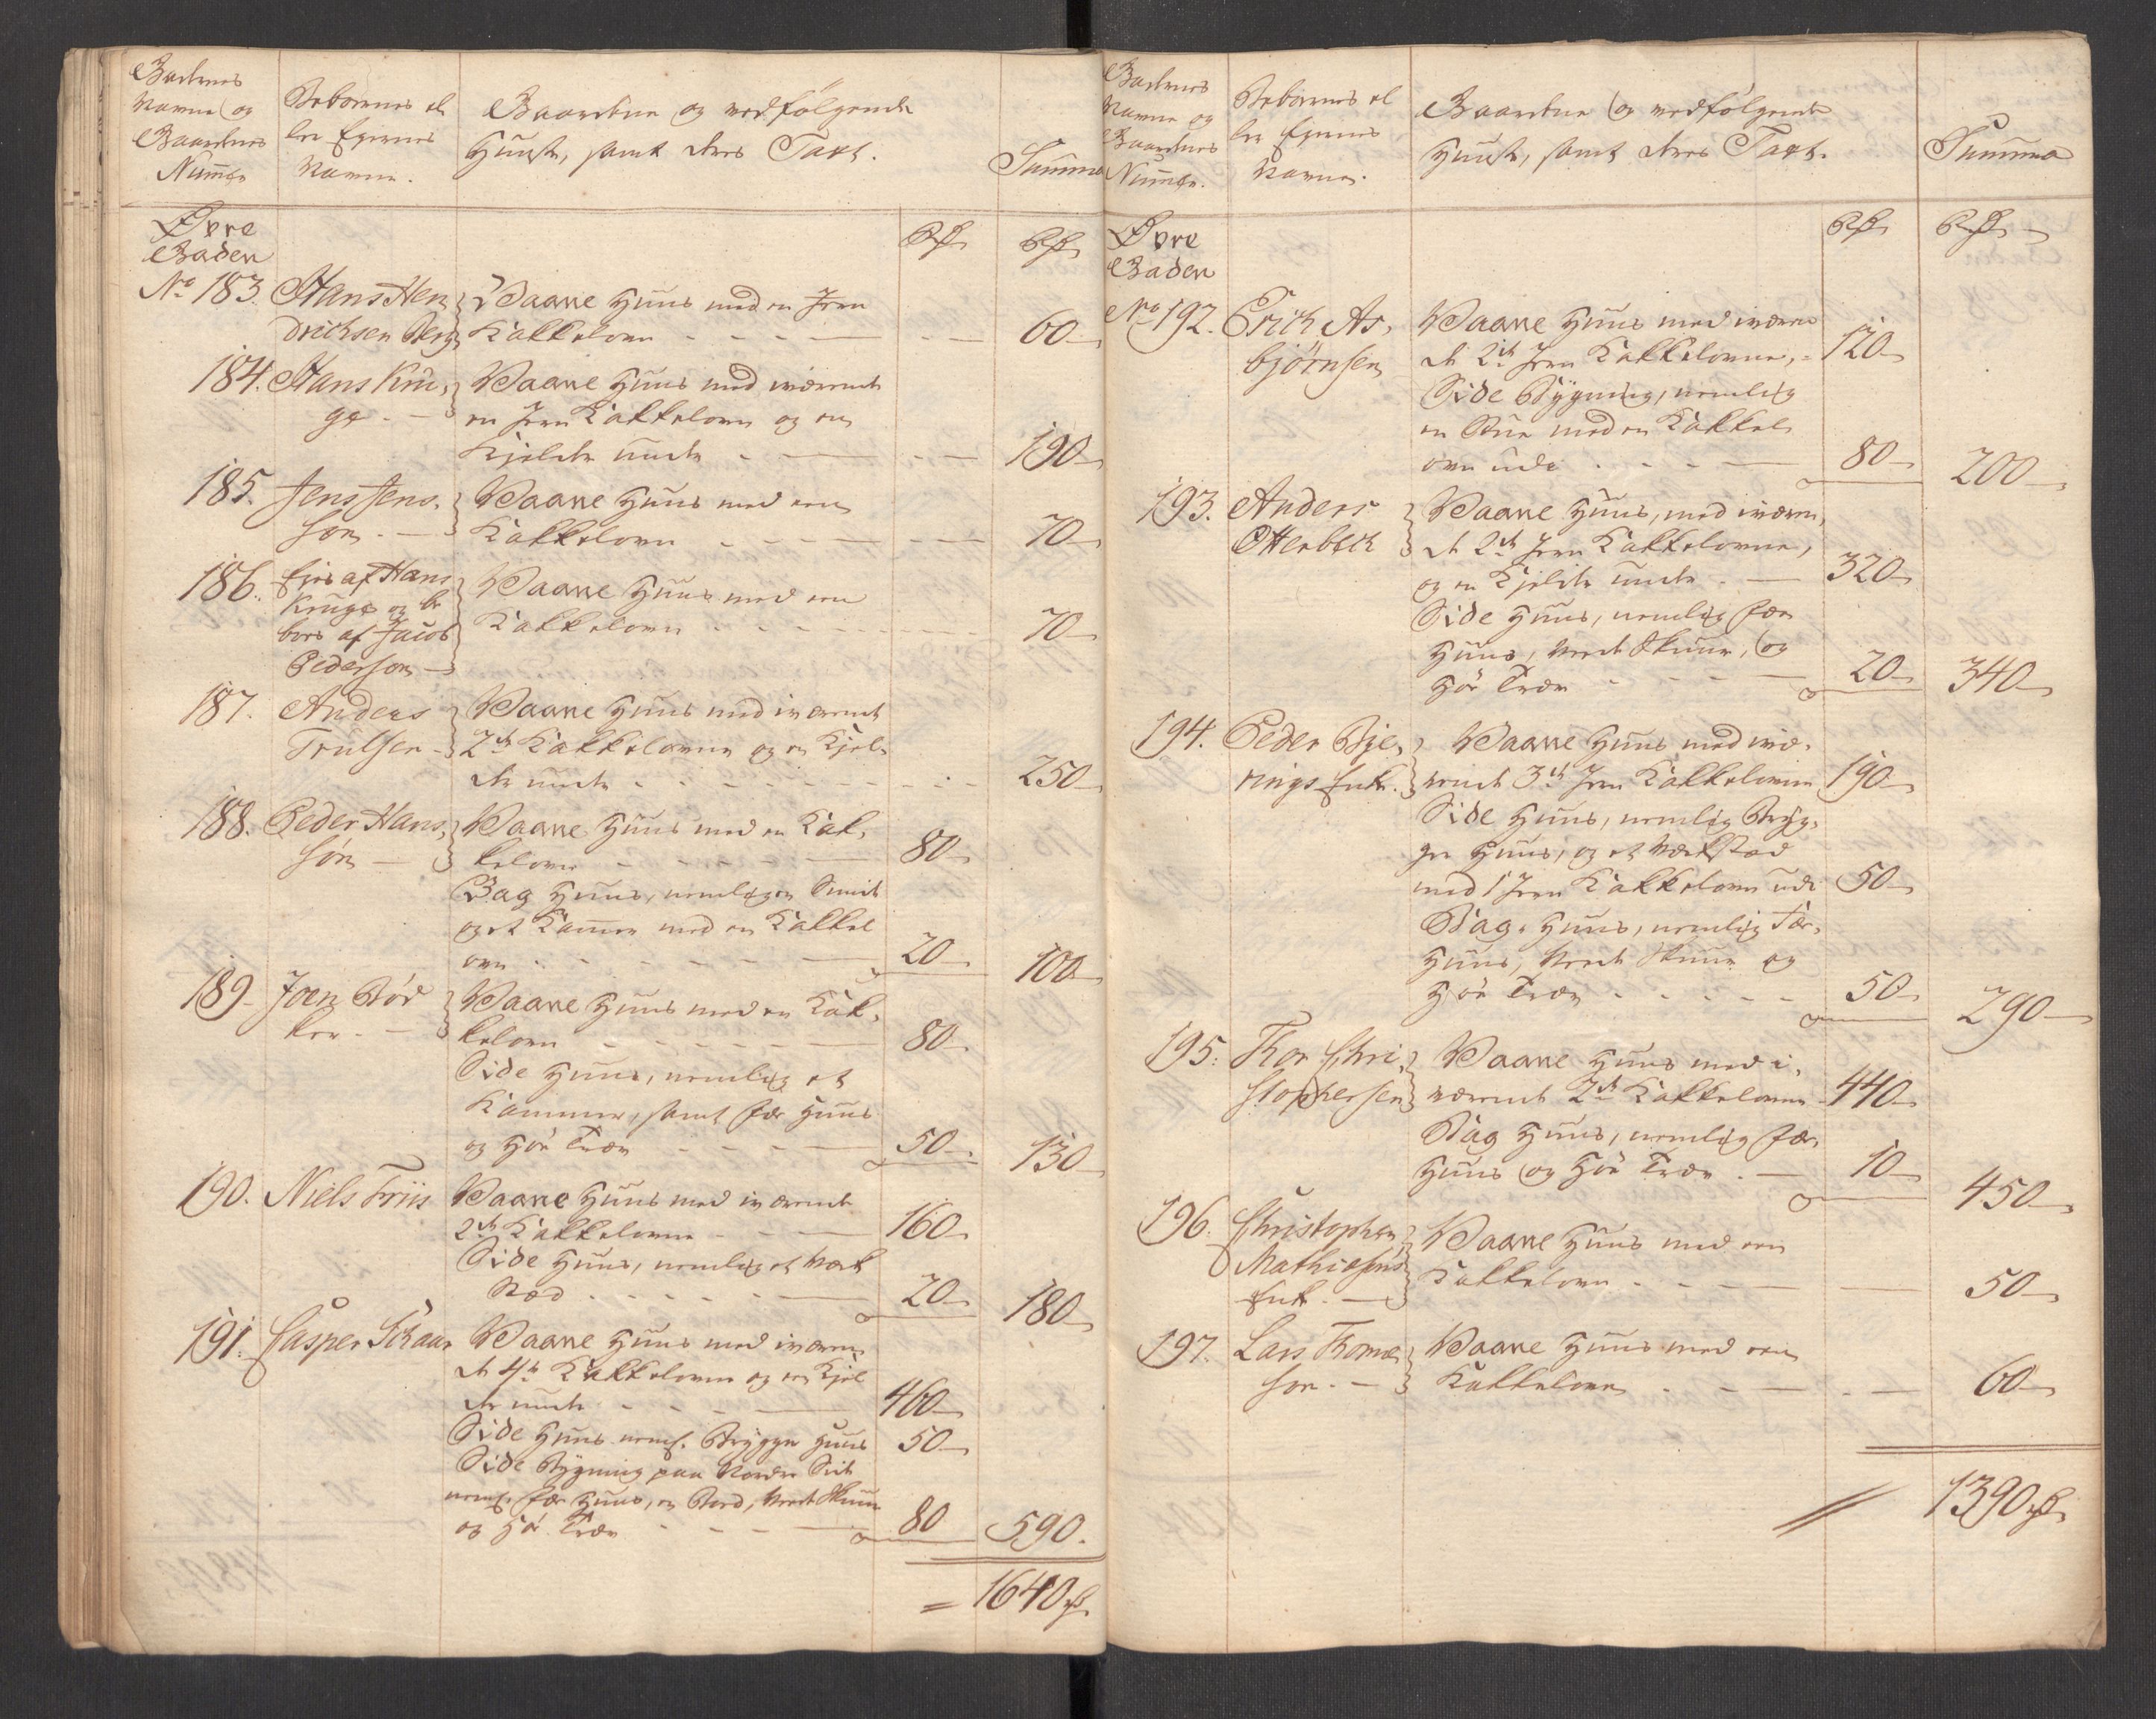 Gadernes
Navne og
Gaardenes
Num̄er
Beboernes el
ler Eiernes
Navne.
Gaardene og medfølgende
Huuse, samt deres Taxt.
Summa
Øvre
Gaden
Rdr
Rdr
No 183. Hans Hen
drichsen Berg
Vaane Huus med en Jern
Kakkelovn - - - - 60
184. Hans Kru,
ge. -
Vaane Huus med iværende
en Jern Kakkelovn og en
Kjelder under - - 190
185. Jens Jens,
son. -
Vaane Huus med een
Kakkelovn - - - - 70
186. Ejes af Hans
Kruge og be
boes af Jacob
Pederson -
Vaane Huus med een
Kakkelovn - - - - 70
187. Anders
Trulsen -
Vaane Huus med iværende
2de Kakkelovne og en Kjel-
der under - - - - 250
188. Peder Hans,
søn -
Vaane Huus med en Kak,
kelovn - - - - 80
Bag Huus, nemlig en Smide
og et Kam̄er med en Kakkel
ovn - - - - 20 100
189 - Joen Bød
ker. -
Vaane Huus med en Kak,
kelovn - - - - 80
Side Huus, nemlig et
Kammer, samt Fæe Huus
og Høe Træv - - - 50 130
190. Niels Friis
Vaane Huus med iværende
2de Kakkelovne - - - 160
Side Huus, nemlig et Værk
Stæd - - - - 20 180
191. Casper Schaar
Vaane Huus med iværen
de 4re Kakkelovne og en Kjel
der under - - - 460
Side Huus neml. Brygger Huus 50
Side Bygning paa Nordre Side
neml. Fæe Huus, en Boed, Vede Skuur
og Høe Træv - - - 80 590.
= 1640 rdr
Gadernes
Navne og
Gaardenes
Num̄er.
Beboernes el
ler Eiernes
Navne.
Gaardene og medfølgende
Huuse, samt deres Taxt.
Summa
Øvre
Gaden
Rdr
Rdr
No 192. Erich As,
bjørnsen
Vaane Huus med iværen
de 2de Jern Kakkelovne, - 120
Side Bygning, nemlig
en Stue med en Kakkel
ovn udi - - - 80 200
193. Anders
Otterbech
Vaane Huus, med iværen,
de 2de Jern Kakkelovne,
og en Kjelder under - 320
Side Huus, nemlig Fæe
Huus, Vede Skuur, og
Høe Træv - - - 20 340
194. Peder Bye,
rings Enke.
Vaane Huus med ivæ,
rende 3de Jern Kakkelovne 190
Side Huus, nemlig Bryg,
ger Huus, og et Værkstæd
med 1 Jern Kakkelovn udi 50
Bag Huus, nemlig Fæe,
Huus, Vede Skuur og
Høe Træv - - - 50 290
195. Thor Chri,
stophersen
Vaane Huus med i,
værende 2de Kakkelovne 440
Bag Huus, nemlig Fæe,
Huus og Høe Træv - 10 450
196. Christopher
Mathiesens
Enke. -
Vaane Huus med een
Kakkelovn - - - 50
197. Lars Thomæ
son. -
Vaane Huus med een
Kakkelovn - - - 60
1390 rdr